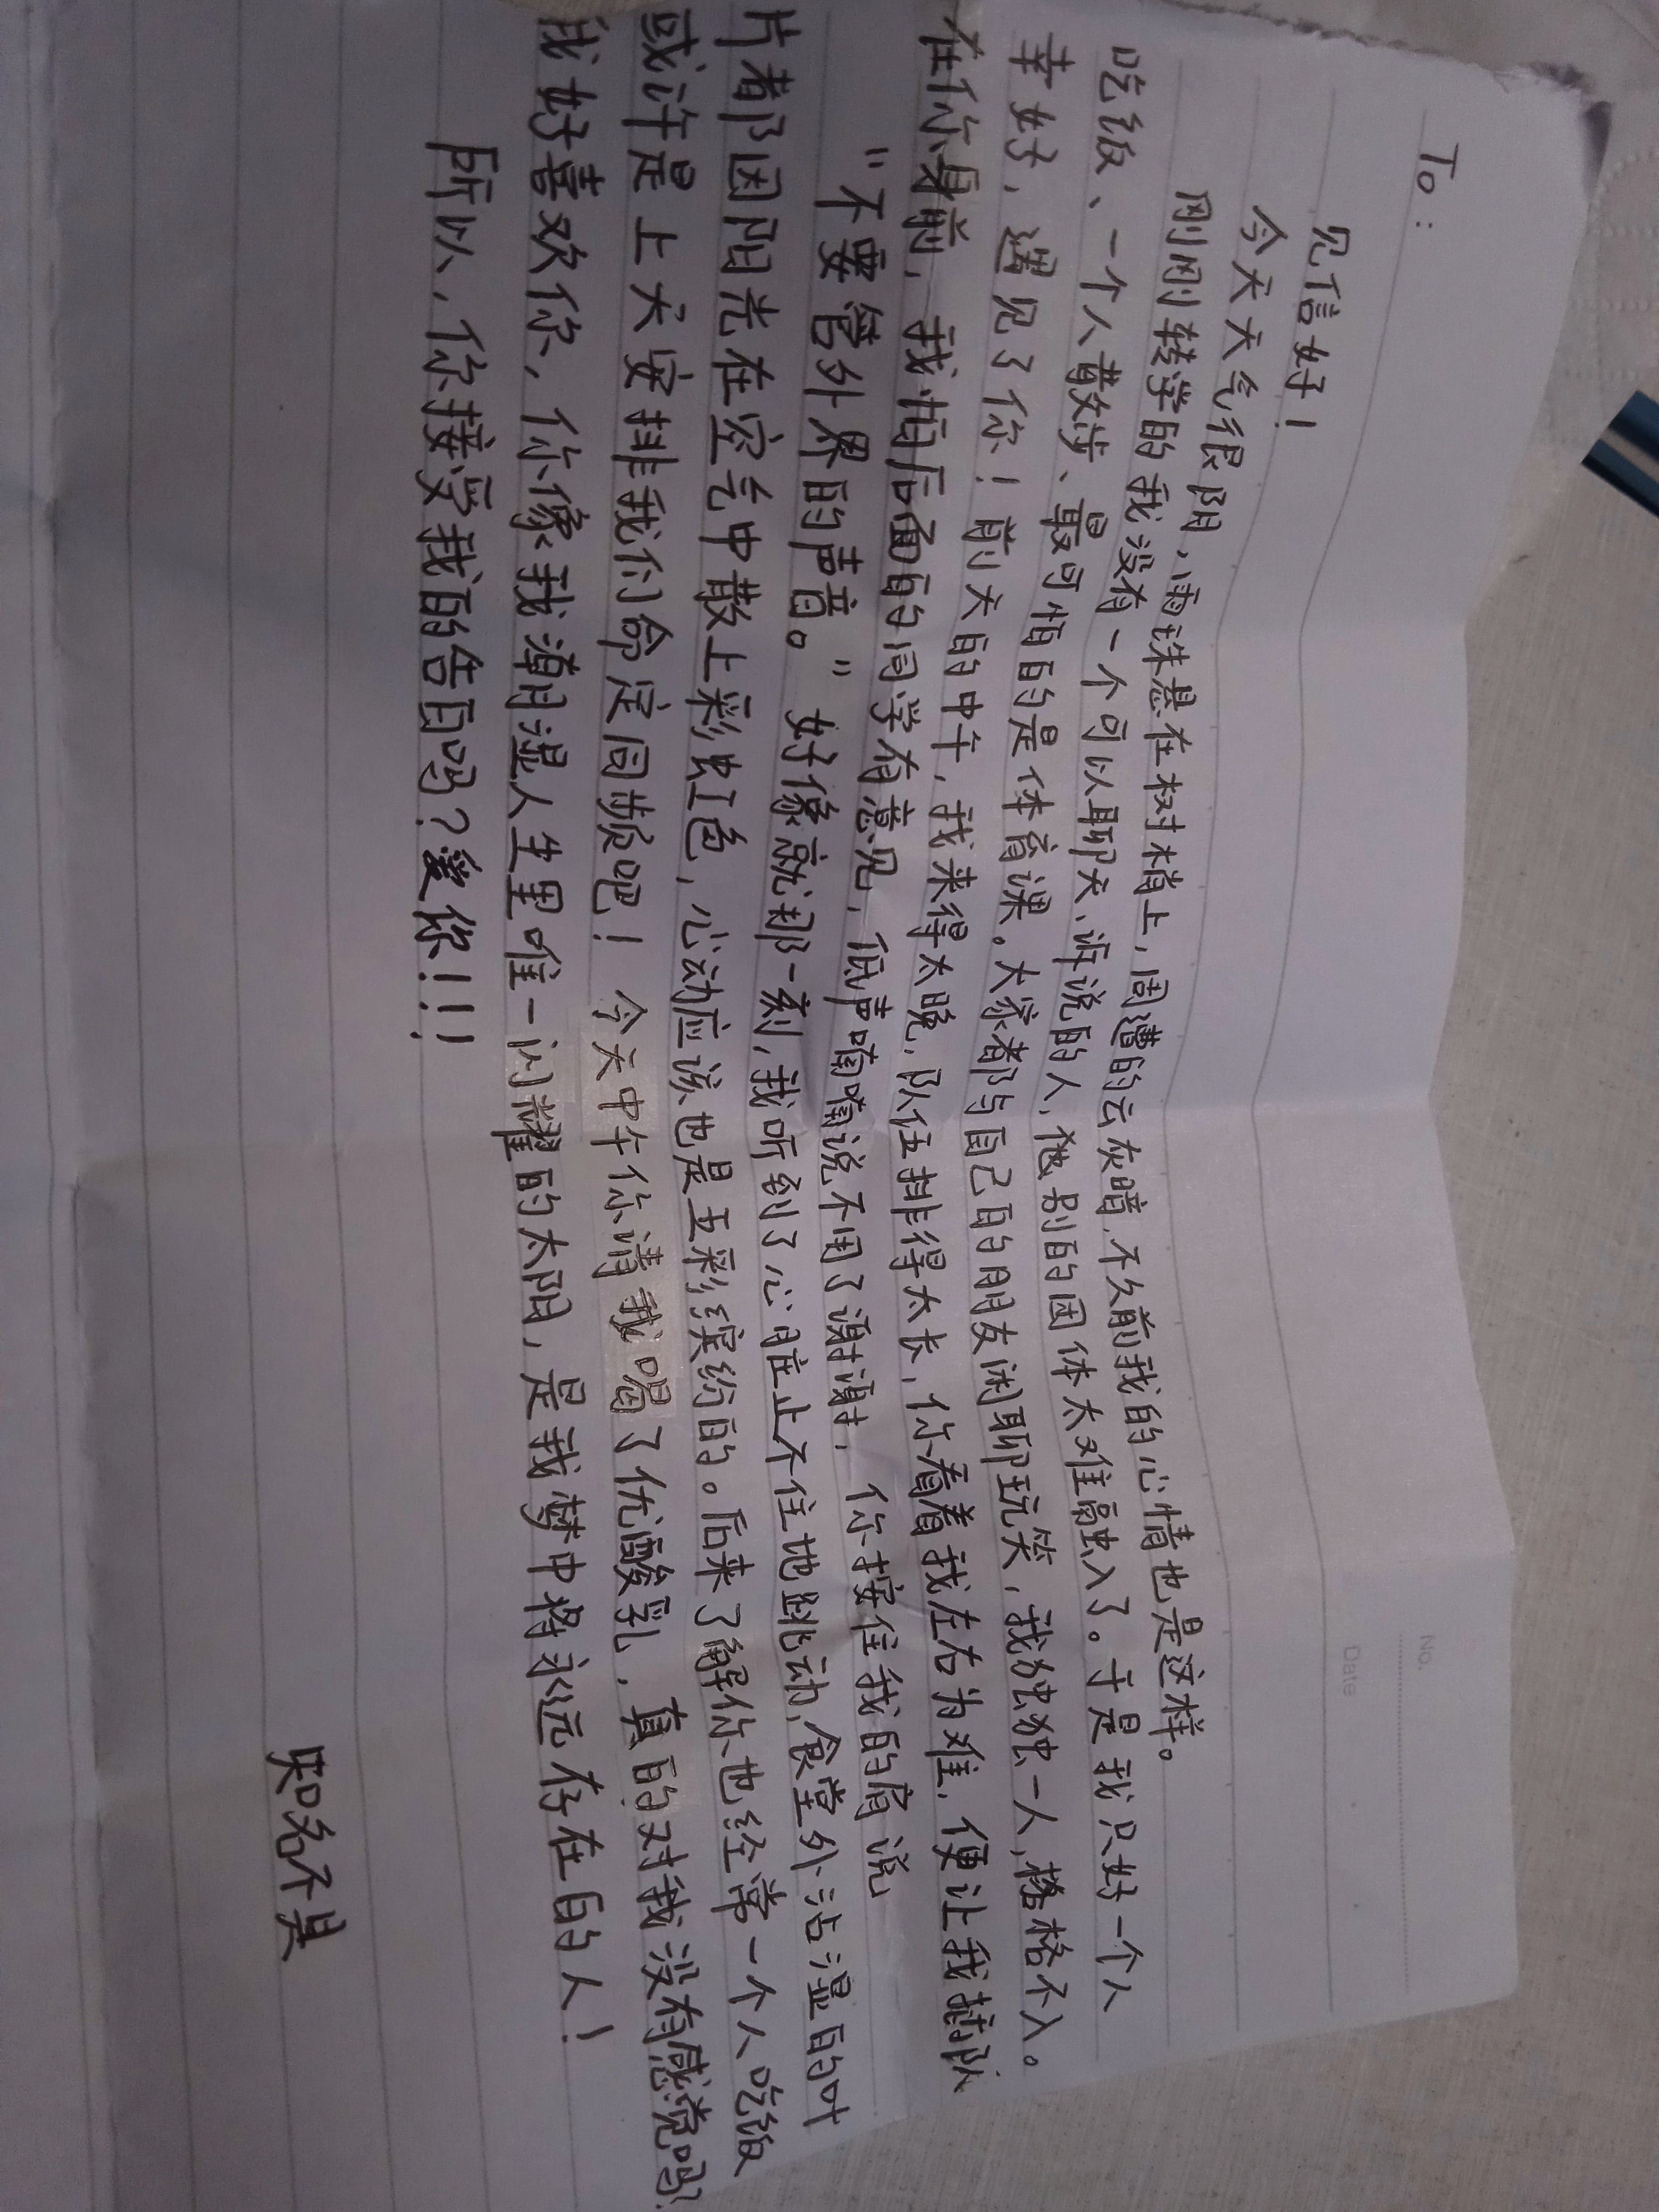 No.
Date
To：
见信好！
今天天气很阴，雨珠悬在树梢上，周遭的云灰暗，不久前我的心情也是这样。
刚刚转学的我没有一个可以聊天、诉说的人，独别的团体太难融入了。于是我只好一个人
吃饭、一个人散步、最可怕的是体育课。大家都与自己的朋友闲聊玩笑，我独独一人，格格不入。
幸好，遇见了你！前天的中午，我来得太晚，队伍排得太长，你看着我左右为难，便让我插队
在你身前，我怕后面的同学有意见，低声喃喃说不用了谢谢，你按住我的肩说
“不要管外界的声音。”好像就那一刻，我听到了心脏止不住地跳动，食堂外沾湿的叶
片都因阳光在空气中散上彩虹色，心动应该也是五彩缤纷的。后来了解你也经常一个人吃饭
或许是上天安排我们命定同频吧！今天中午你请我喝了优酸乳，真的对我没有感觉吗？
我好喜欢你，你像我潮湿人生里唯一闪耀的太阳，是我梦中将永远存在的人！
所以，你接受我的告白吗？爱你！！！
知名不具